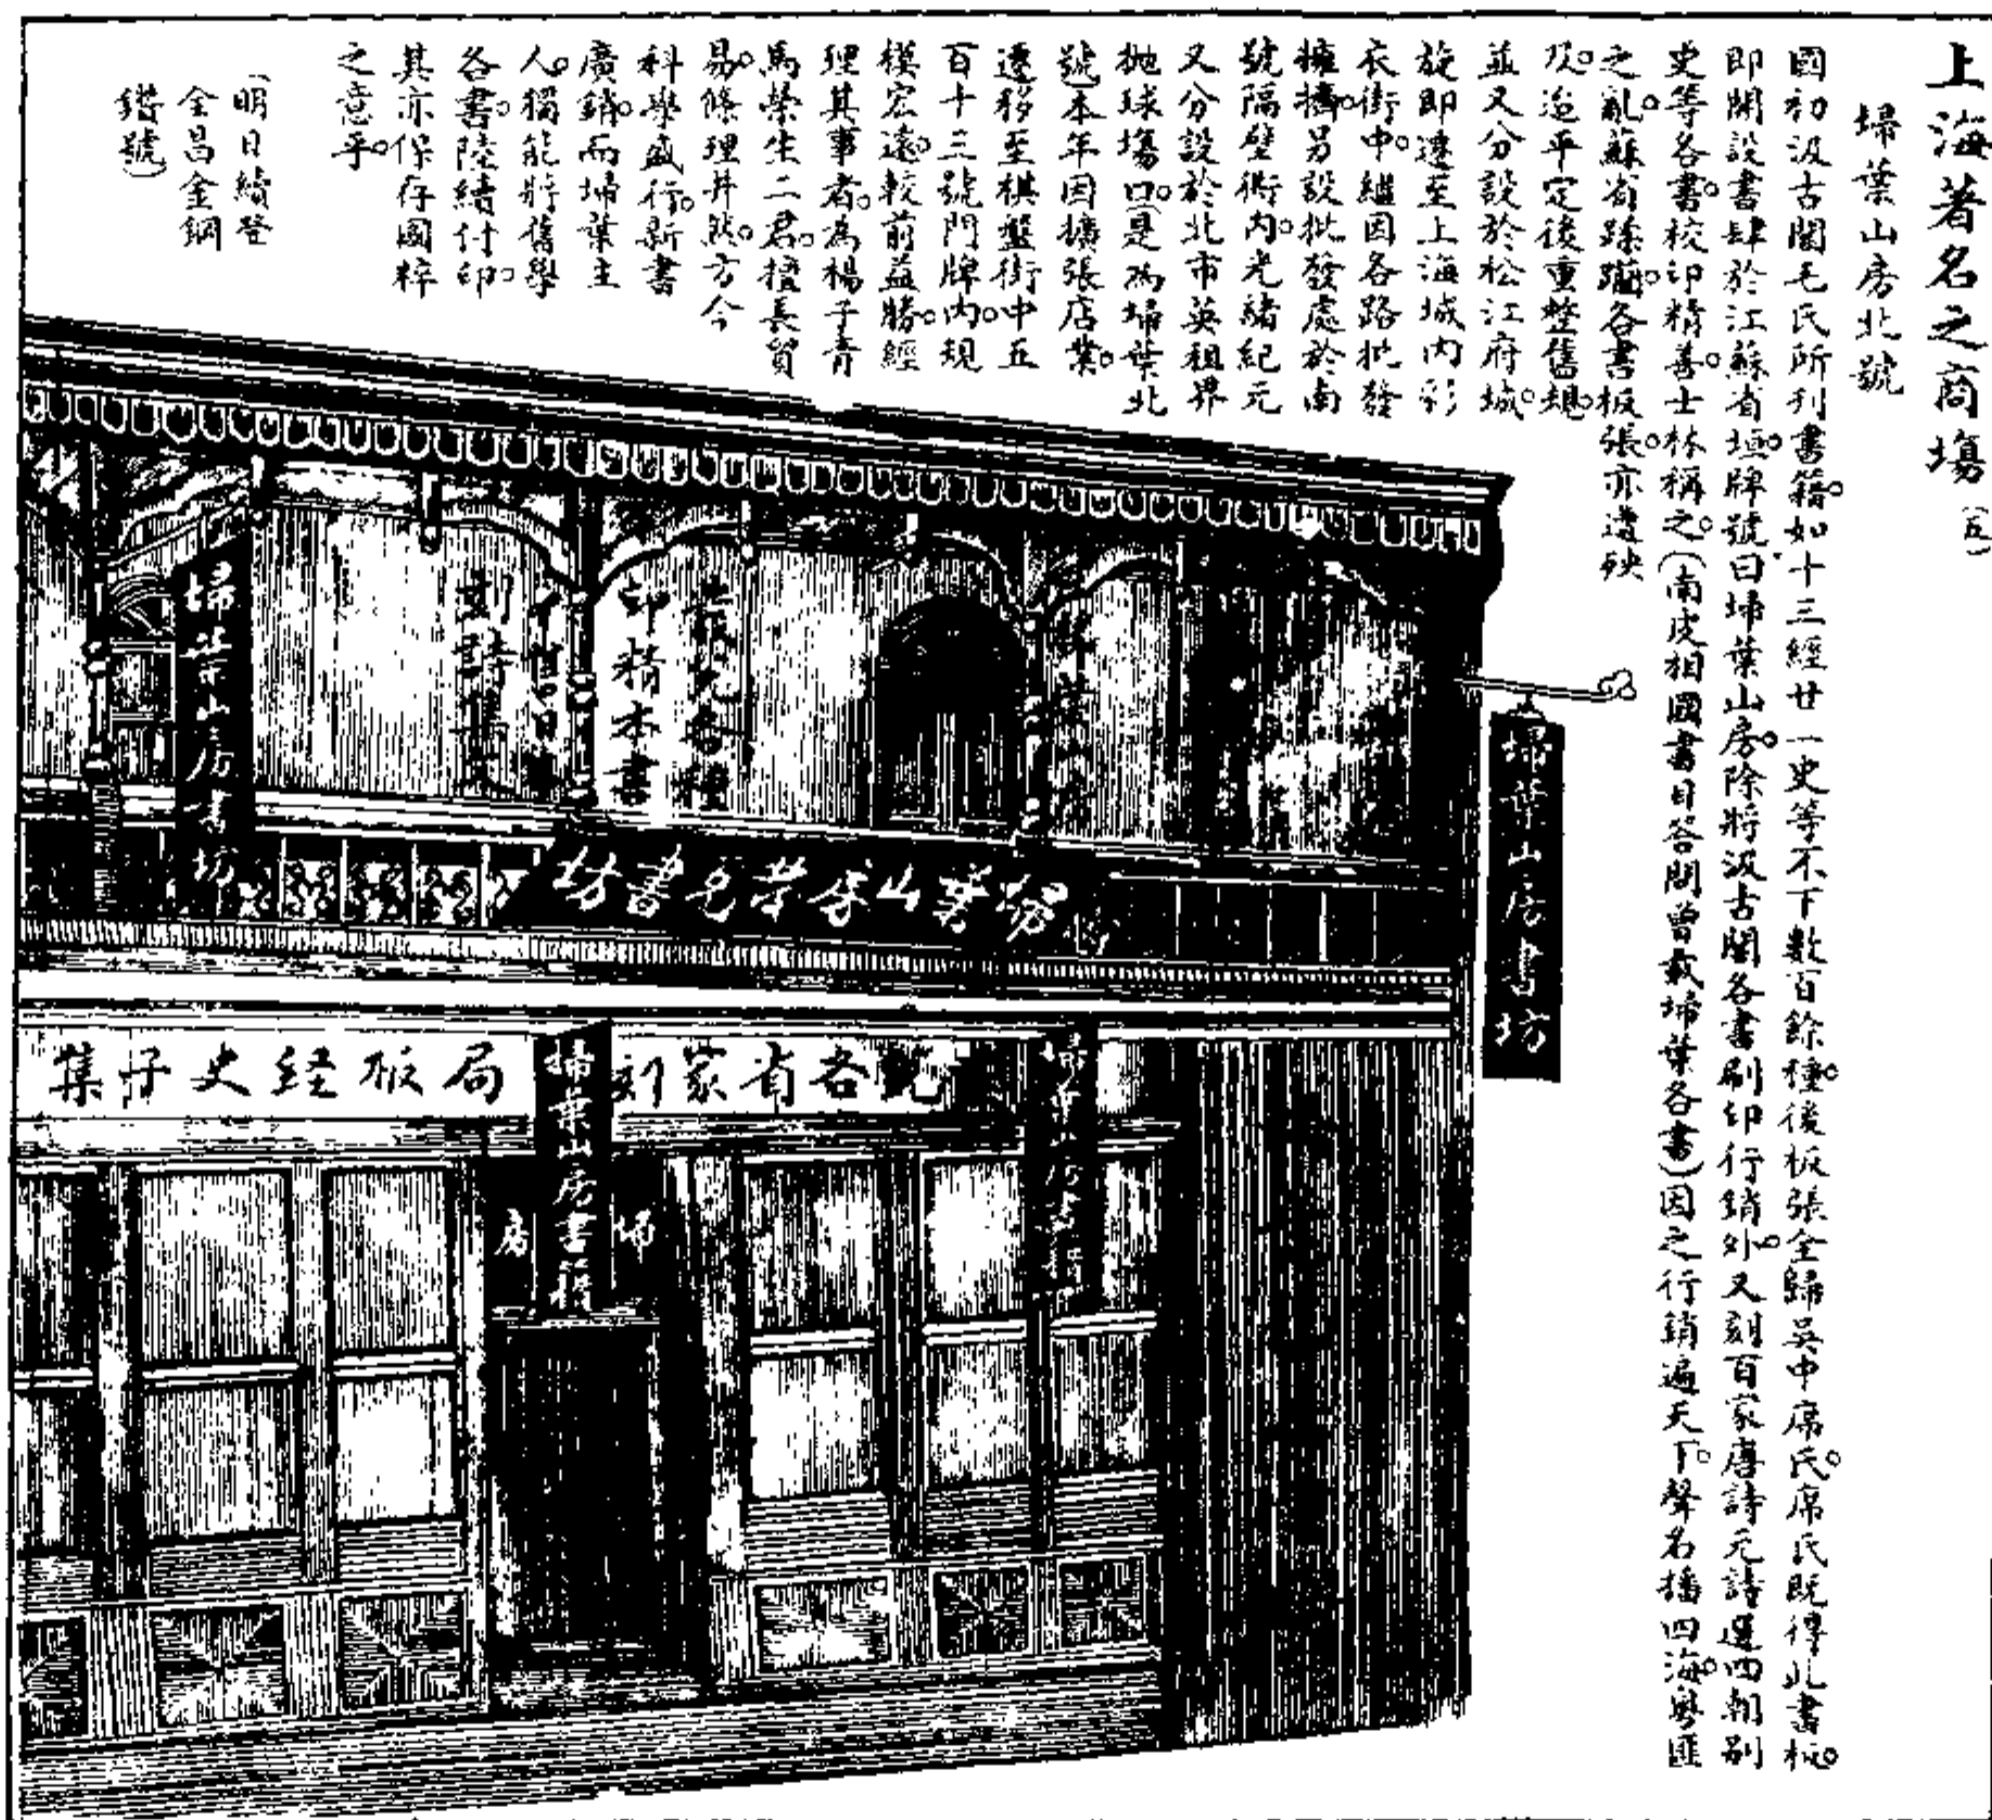 上海著名之商場（五）
埽葉山房北號
國初汲古閣毛氏所刊書籍。如十三經廿一史等不下數百餘種。後板張全歸吳中席氏。席氏既得此書板。
即開設書肆於江蘇省垣。牌號曰埽葉山房。除將汲古閣各書刷印行銷外。又刻百家唐詩元詩選四朝別
史等各書。校印精善。士林稱之。（南皮相國書目答問曾載埽葉各書）因之行銷遍天下。聲名播四海。粵匪
之亂。蘇省蹂躪。各書板張。亦遭殃
及。迨平定後重整舊規。
並又分設於松江府城。
旋即遷至上海城內彩
衣街中。繼因各路批發
擁擠。另設批發處於南
號隔壁衖內。光緒紀元
又分設於北市英租界
拋球場口。（是為埽葉北
號）本年因擴張店業。
遷移至棋盤街中五
百十三號門牌內。規
模宏遠。較前益勝。經
理其事者。為楊子青
馬榮生二君。擅長貿
易。條理井然。方今
科學盛行。新書
廣銷。而埽葉主
人。獨能將舊學
各書。陸續付印。
其亦保存國粹
之意乎。
（明日續登
全昌金鋼
鑽號）
埽葉山房書坊
印精本書
各種
埽葉山房書坊
埽葉山房書坊
各省家刻
局版經史子集
掃葉山房書籍
房